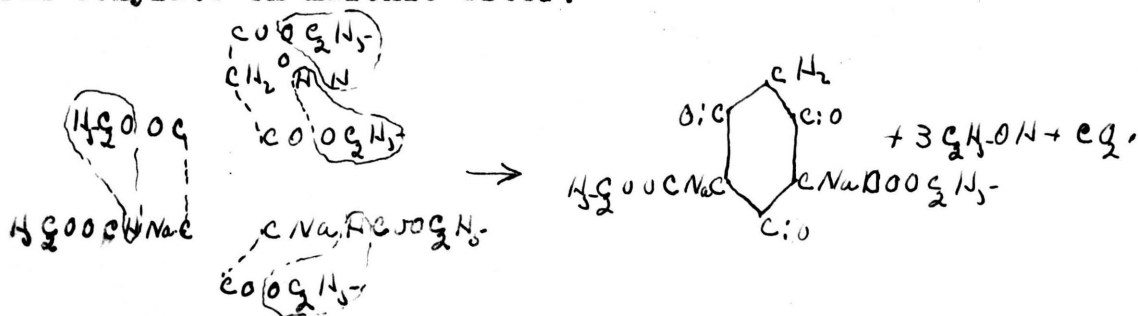 COOC₂H₅
CH₂ O H H
H₅C₂O OC COOC₂H₅
H₅C₂OOCHNaC CNaHCOOC₂H₅
COOC₂H₅
→
CH₂
O:C C:O
H₅C₂OOCNaC CNaCOOC₂H₅
C:O
+ 3C₂H₅OH + CO₂.